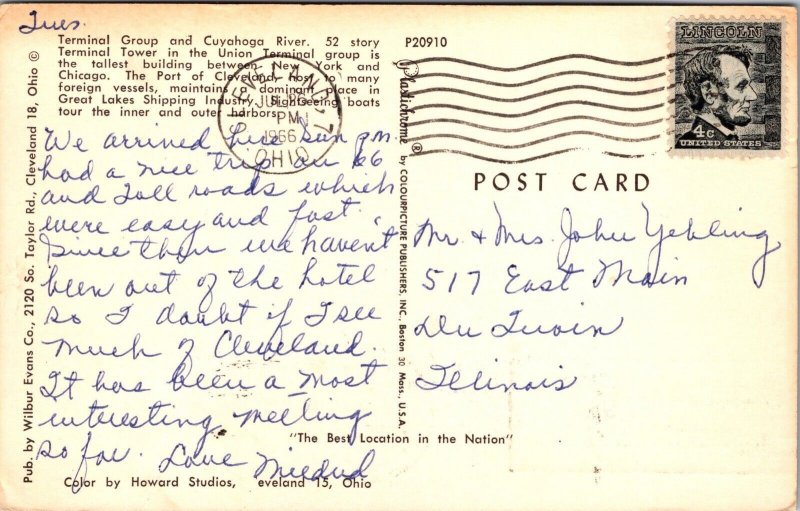 Tues.
Terminal Group and Cuyahoga River. 52 story
Terminal Tower in the Union Terminal group is
the tallest building between New York and
Chicago. The Port of Cleveland, host to many
foreign vessels, maintains a dominant place in
Great Lakes Shipping Industry. Sightseeing boats
tour the inner and outer harbors.
P20910
CLEVELAND
JUL 26
PM
1966
OHIO
LINCOLN
4c
UNITED STATES
We arrived here Sun pm.
had a nice trip on 66
and Toll roads which
were easy and fast.
Since then we haven't
been out of the hotel
so I doubt if I see
much of Cleveland.
It has been a most
interesting meeting
so far. Love Mildred
POST CARD
Mr. & Mrs. John Yehling
517 East Main
Du Quoin
Illinois
"The Best Location in the Nation"
Color by Howard Studios, eveland 15, Ohio
Pub. by Wilbur Evans Co., 2120 So. Taylor Rd., Cleveland 18, Ohio ©
Plastichrome ® by COLOURPICTURE PUBLISHERS, INC., Boston 30 Mass., U.S.A.